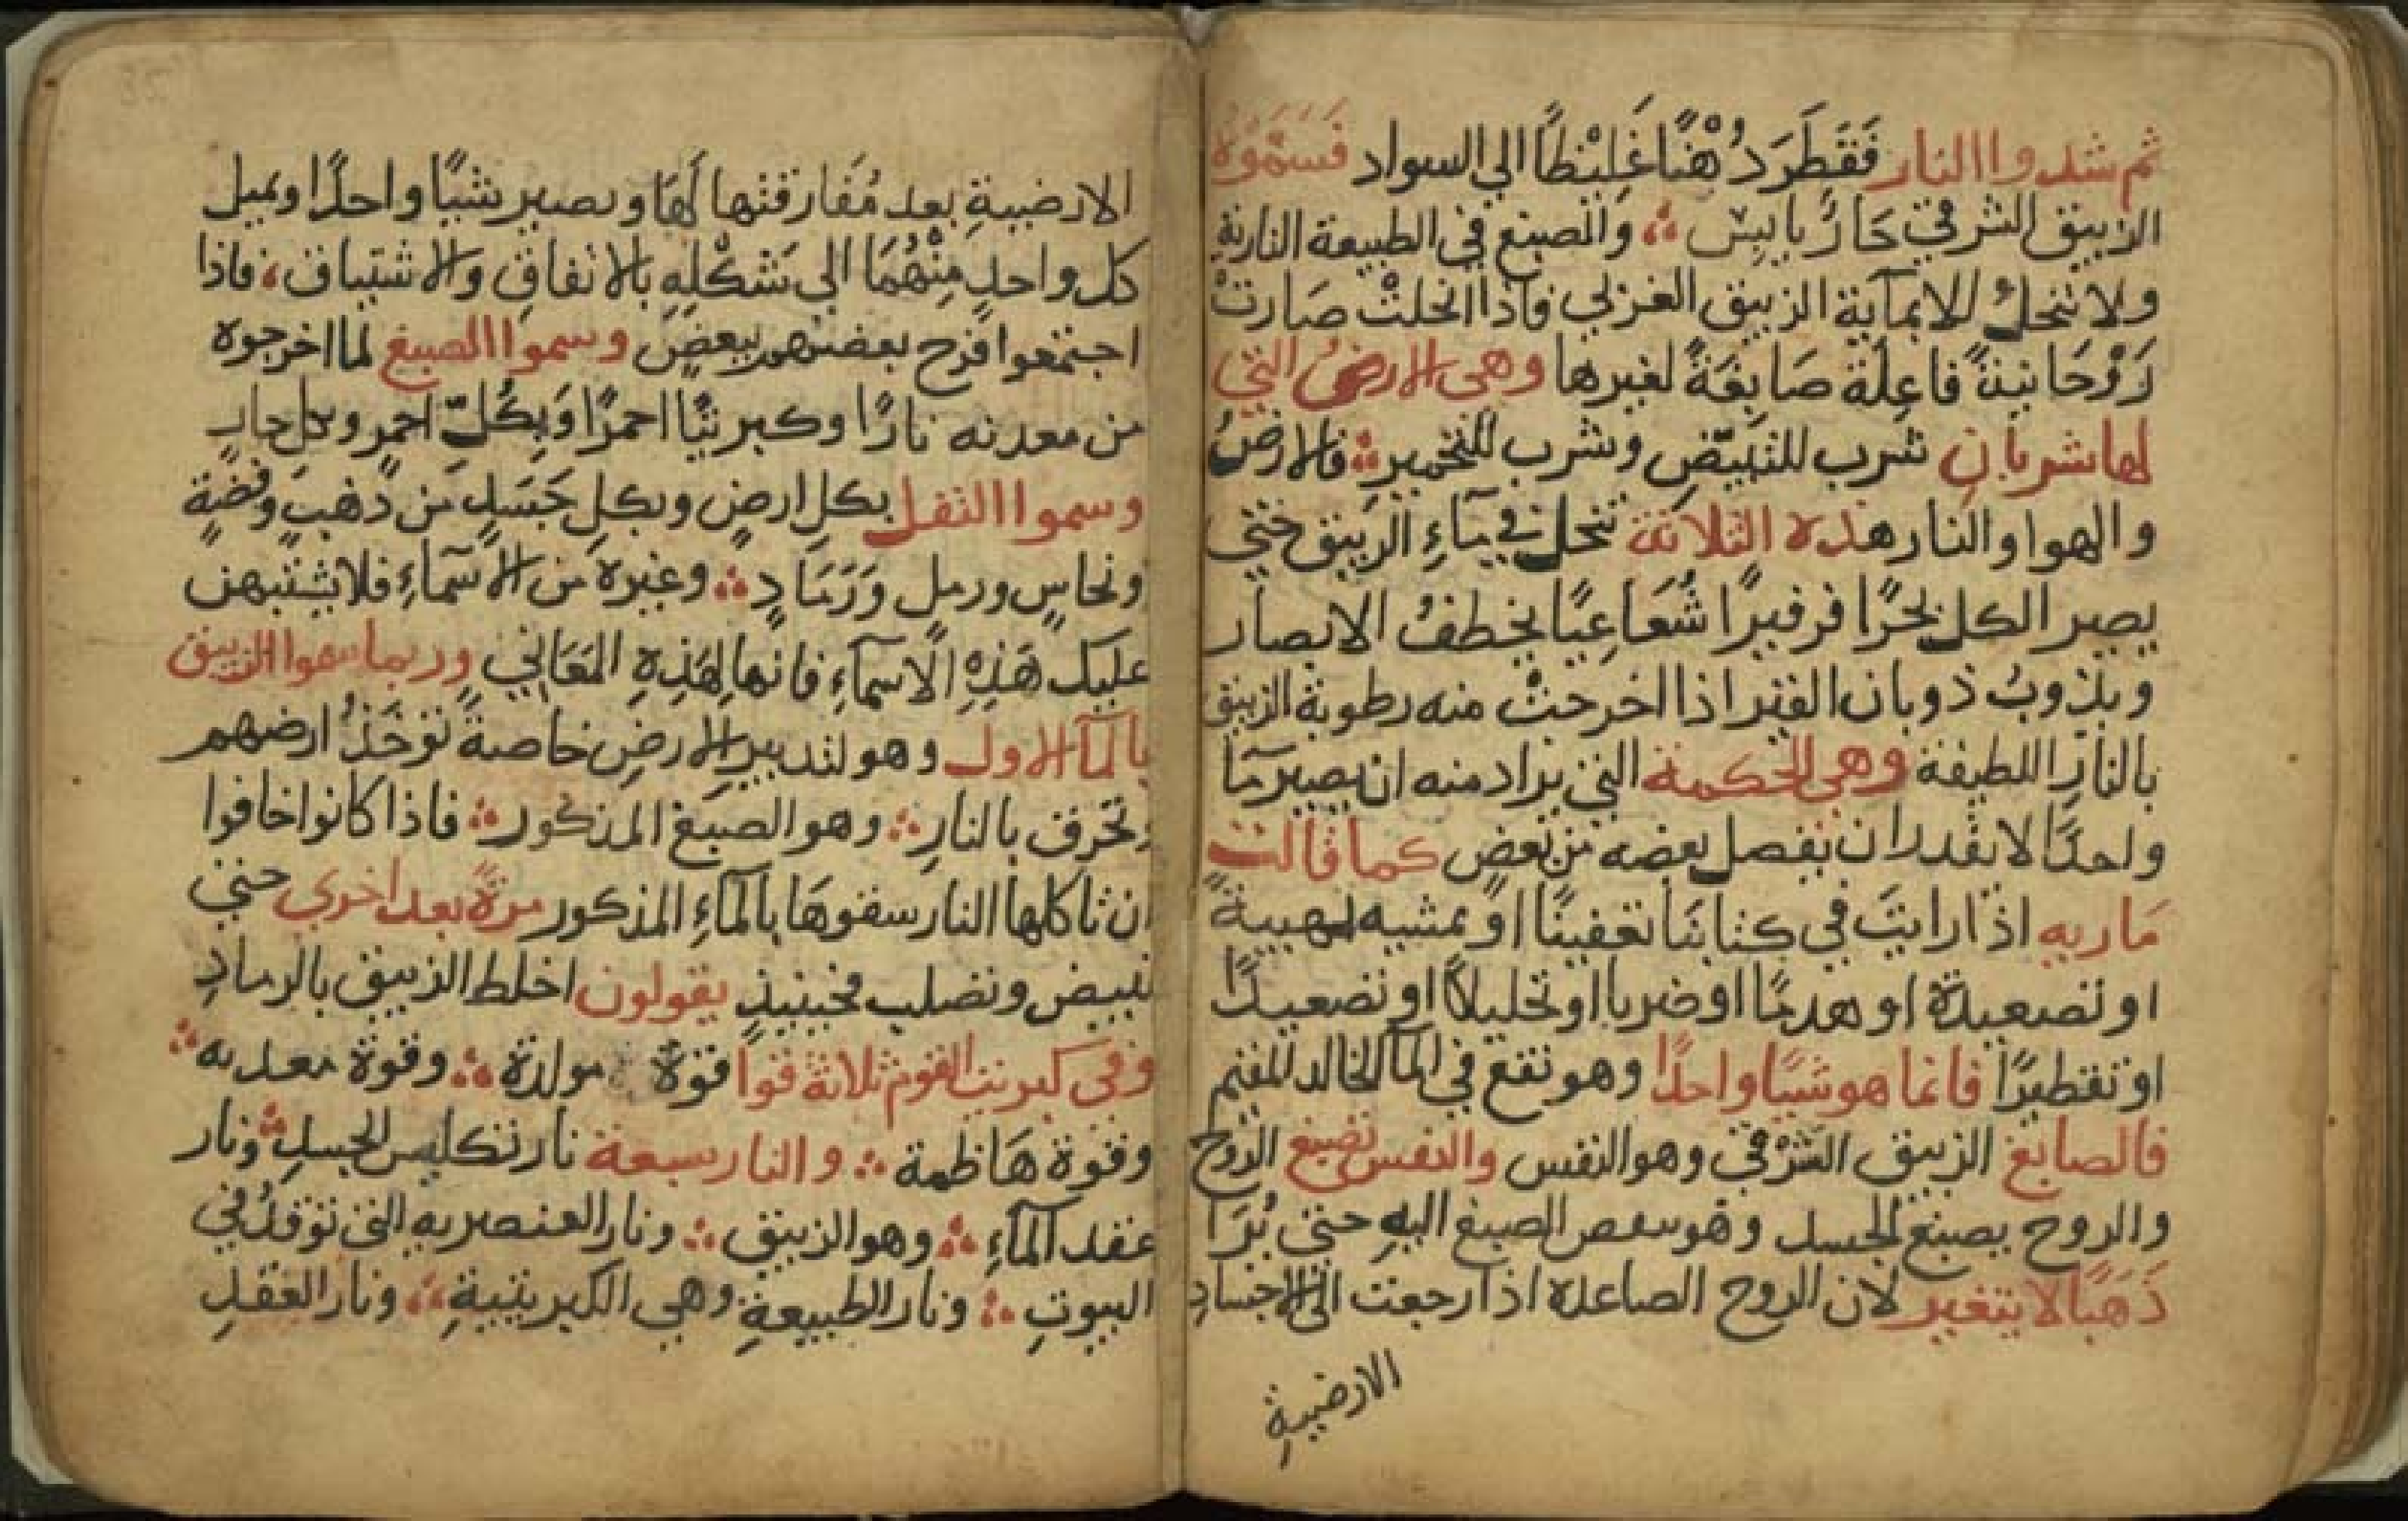 ثم شدوا النار فَقَطَرَ دُهْنًا غَلِيْظًا الي السواد فَسَمَّوَهُ
الزيبق الشرقي حَارٌ يابِس ؞ والصبغ في الطبيعة النارية
ولا تنحلُ الا بمآية الزيبق الغربي فاذا انحلتْ صَارتْ
رَوْحَانيةً فاعِلَة صَابِغَةً لغيرها وهي الارضُ التي
لها شربانِ شرب للتبيّضِ وشرب للتحمير ؞ فالارضُ
والهوا والنار هذه الثلاثة تنحل في مآءِ الزيبق حتي
يصير الكل بحرًا فرفيرًا شُعَاعِيًا يخطفُ الابصار
ويذوبُ ذوبان القير اذا اخرجتْ منه رطوبة الزيبق
بالنار اللطيفة وهي الحكمة التي يراد منه ان يصير مآ
واحدًا لا نقدر ان نفصل بعضه من بعضٍ كما قالت
مَاريه اذا رايتَ في كتابنا تعفينًا او تمشيه
او تصعيدة او هدمًا او ضربا او تحليلاً او تصعيدًا
او تقطيرًا فانما هو شيًا واحدًا وهو نقع في المآ الخالد المقيم
فالصابغ الزيبق الشَرْقي وهو النفس والنفس تصبغ الروح
والروح يصبغ الجسد وهو الصبغ اليهِ حتي يُرَا
ذَهَبًا لا يتغير لان الروح الصاعده اذا رجعت الي الاجسادِ
الارضيةِ
الارضيةِ بعد مُفَارقتها لَهَا وتصير شيًا واحدًا ويميل
كل واحدٍ مِنْهُمَا الي شَكْلِهِ بالاتفاقِ والاشتياق ، فاذا
اجتمعوا فرح بعضهم ببعضٍ وسموا الصبغ لما اخرجوه
من معدنه نارًا وكبريتًا احمرًا وَبِكُلِّ احمرٍ وبكل حارٍ
وسموا الثفل بكل ارضٍ وبكلِ جَسَدٍ من ذهبٍ وفضةٍ
ونحاسٍ ورملٍ وَرَمَادٍ ؞ وغيره من الاسمآءِ فلا يشتبهن
عليك هَذِهِ الاسمآءِ فانها لِهَذِهِ المَعَاني وربما سموا الزيبق
بالمآ الاول وهو لتدبير الارضِ خاصةً توخَذُ ارضهم
وتحرق بالنارِ ؞ وهو الصبغ المذكور ؞ فاذا كانوا خافوا
ان تاكلها النار سقوهَا بالمآءِ المذكور مرةً بعد اخري حتي
تبيض وتصلب فحينيذٍ يقولون اخلط الزيبق بالرمادِ
وفي كبريت القوم ثلاثة قوا قوة مولدة ؞ وقوة معدنه ؞
وقوة هَاظمة ؞ والنار سبعة نار تكليس الجسدِ ؞ ونار
عقد المآءِ ؞ وهو الزيبق ؞ ونار العنصريه التي توقدُ في
البيوتِ ؞ ونار الطبيعةِ وهي الكبريتيةِ ؞ ونار العقلِ